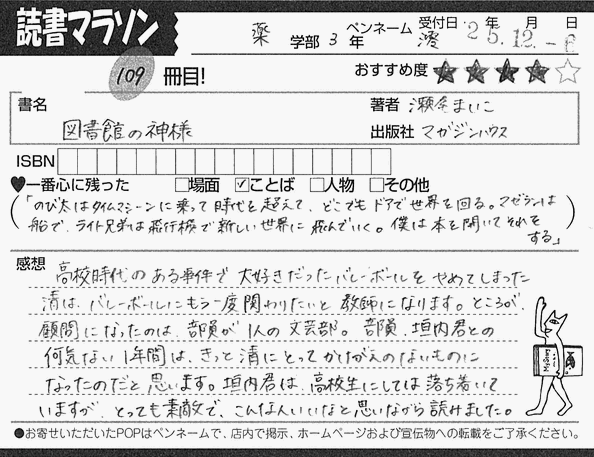 読書マラソン
薬 学部 3 年 ペンネーム 澄 受付日 '25年12月-6日
109 冊目! おすすめ度 ★★★★☆
書名 著者 瀬尾まいこ
図書館の神様 出版社 マガジンハウス
ISBN
♥一番心に残った □場面 ☑ことば □人物 □その他
「のび太はタイムマシーンに乗って時代を超えて、どこでもドアで世界を回る。マゼランは
船で、ライト兄弟は飛行機で新しい世界に飛んでいく。僕は本を開いてそれを
する」
感想
高校時代のある事件で大好きだったバレーボールをやめてしまった
清は、バレーボールにもう一度関わりたいと教師になります。ところが、
顧問になったのは、部員が1人の文芸部。部員、垣内君との
何気ない1年間は、きっと清にとってかけがえのないものに
なったのだと思います。垣内君は、高校生にしては落ち着いて
いますが、とっても素敵で、こんな人いいなと思いながら読みました。
●お寄せいただいたPOPはペンネームで、店内で掲示、ホームページおよび宣伝物への転載をご了承ください。